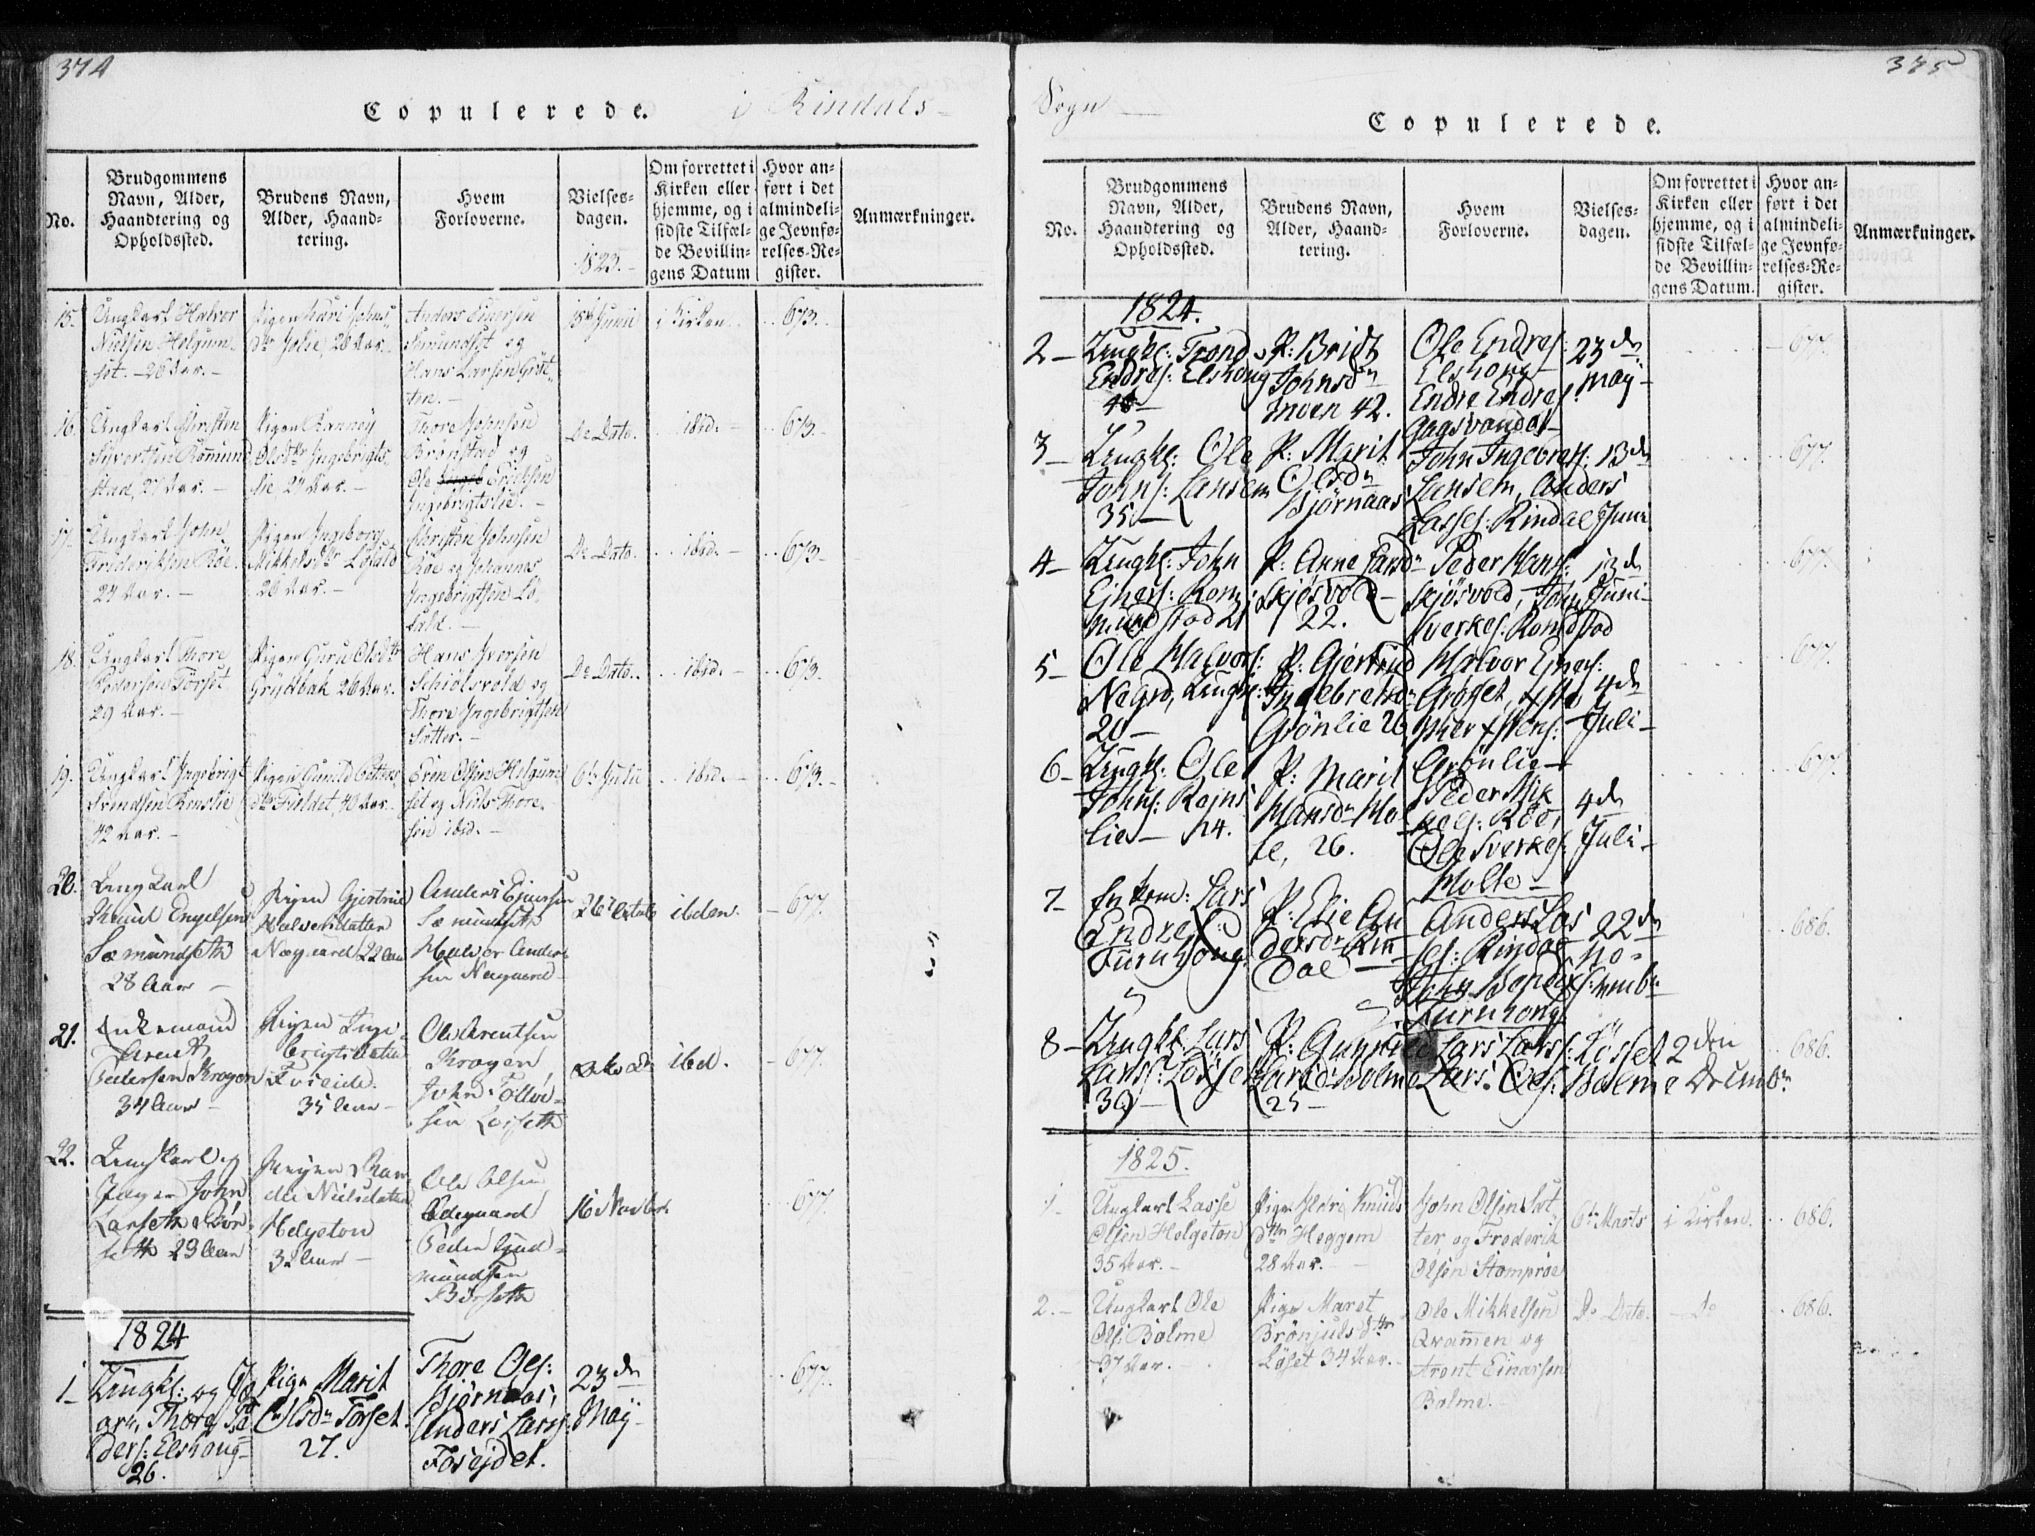 374
Copulerede.
i Rindals-
No.
Brudgommens Navn, Alder, Haandtering og Opholdssted.
Brudens Navn, Alder, Haandtering.
Hvem Forloverne.
Vielsesdagen.
1823.-
Om forrettet i Kirken eller hjemme, og i sidste Tilfælde Bevillingens Datum
Hvor anført i det almindelige Jevnførelses-Register.
Anmærkninger.
15.
Ungkarl Halvor
Nielsen Helgum-
set. - 26 Aar. -
Pigen Kari Johns-
dtr Folie, 26 Aar.
Anders Einersen
Sæmundset og
Hans Larsen Grøt-
ten. -
15de Junii
i Kirken.
673.
16.
Ungkarl Christen
Syvertsen Romund-
stad, 27 Aar. -
Pigen Rannøy
Olsdtr Ingebrigts-
lie 24 Aar. -
Thore Johnsen
Brønstad og
Ole Erichsen
Ingebrigtslie. -
De Dato.
ibid. -
673.
17.
Ungkarl John
Frideriksen Bøe.
24 Aar. -
Pigen Ingeborg
Mikkelsdtr Løfald
26 Aar. -
Christen Johnsen
Bøe og Johannes
Ingebrigtsen Lø-
fald. -
De Dato.
ibid. -
673.
18.
Ungkarl Thore
Pedersen Torset
29 Aar. -
Pigen Guru Olsdtr
Grytbak 26 Aar.
Hans Iversen
Schiølsvold og
Thore Ingebrigtsen
Sætter. -
De Dato.
ibid. -
673.
19.
Ungkarl Ingebrigt
Svendsen
42 Aar. -
Pigen Gunild Peders-
dtr Fieldet, 40 Aar.
Even Olsen Helgum-
set og Niels Thore-
sen ibid. -
6te Julii
ibid. -
673.
20.
Ungkarl
Knud Engelsen
Sæmundseth
28 Aar -
Pigen Giertrud
Halvorsdatter
Nægaard 22 Aar
Anders Ejnersen
Sæmundseth
Halvor Ander-
sen Nægaard -
26de Octob
ibden.
677.
21.
Enkemand
Arent
Pedersen Krogen
34 Aar -
Pigen Inge-
brigtsdatter
Foseide.
35 Aar -
Ole Arentsen
Krogen
John Tollev-
sen Løsseth
ibd.
677.
22.
Ungkarl og
Jæger John
Larseth Bør-
seth 29 Aar
Pigen Ran-
di Nielsdatter
Helgeton
32 Aar -
Ole Olsen
Ødegaard
Peder Gud-
mundsen
Børseth
16 Novbr.
677.
1824
1 -
Ungkl: og Jæ-
ger, Thore Pe-
ders: Elshoug -
26.
Pige Marit
Olsdr Torset.
27.
Thore Oles:
Bjørnaas,
Anders Larss:
Fosejdet.
23de
Maij -
677.
Sogn
375
Copulerede.
No.
Brudgommens Navn, Alder, Haandtering og Opholdssted.
Brudens Navn, Alder, Haandtering.
Hvem Forloverne.
Vielsesdagen.
Om forrettet i Kirken eller hjemme, og i sidste Tilfælde Bevillingens Datum.
Hvor anført i det almindelige Jevnførelses-Register.
Anmærkninger.
1824.
2 -
Ungkl: Trond
Endres: Elshoug
P: Bridt
Johnsdr
Moen 42.
Ole Endres:
Elshoug -
Endre Endres:
23de
Maij -
677.
3 -
Ungkl: Ole
Johns: Lansem
35 -
P: Marit
Olsdr
Bjørnaas
John Ingebrets:
Lansem, Anders
Lasses: Rindal
13de
Juni
677.
4 -
Ungkl: John
Ejners: Rom-
mundstad 21
P: Anne Larsdr
Skjøsvold -
22.
Peder Hans:
Skjøsvold, John
Sverkes: Romdstad
13de
Juni -
677.
5 -
Ole Halvors:
Negrd, Ungkl:
20 -
P: Gjertrud
Ingebretsdr
Grønlie 26
Halvor Ejners:
Grønlie -
4de
Juli -
677.
6 -
Ungkl: Ole
Johns: Rejns-
lie -
P: Marit
Hansdr Mo-
le, 26.
Peder Mik-
kels: Bøe,
Ole Sverkes:
Holte -
4de
Juli -
677.
7 -
Enkem: Lars
Endres:
Furuhoug.
P: Elie An-
dersdr Rin-
dal -
Anders Las-
ses: Rindal -
John
Furuhoug
22de
No-
vembr.
686.
8 -
Ungkl. Lars
Larss: Løsset
30 -
P: Gunnild
Larsdr Bolme
25 -
Lars Larss: Løsset
Lars Oles: Bolme
2den
Decembr.
686.
1825.
1.
Ungkarl Lasse
Olsen Helgeton
35 Aar. -
Pige Kari Knuds
dttr Heggem
28 Aar. -
John Olsen Sæt-
ter, og Frederik
Olsen Stomprøe
6te Marts
i Kirken.
686.
2. -
Ungkarl Ole
Ols: Bolme
37 Aar.
Pige Maret
Brønjulsdttr
Løset 34 Aar. -
Ole Mikkelsen
Qvammen og
Aront Einarsen
Bolme. -
De Dato.
- Do
686.